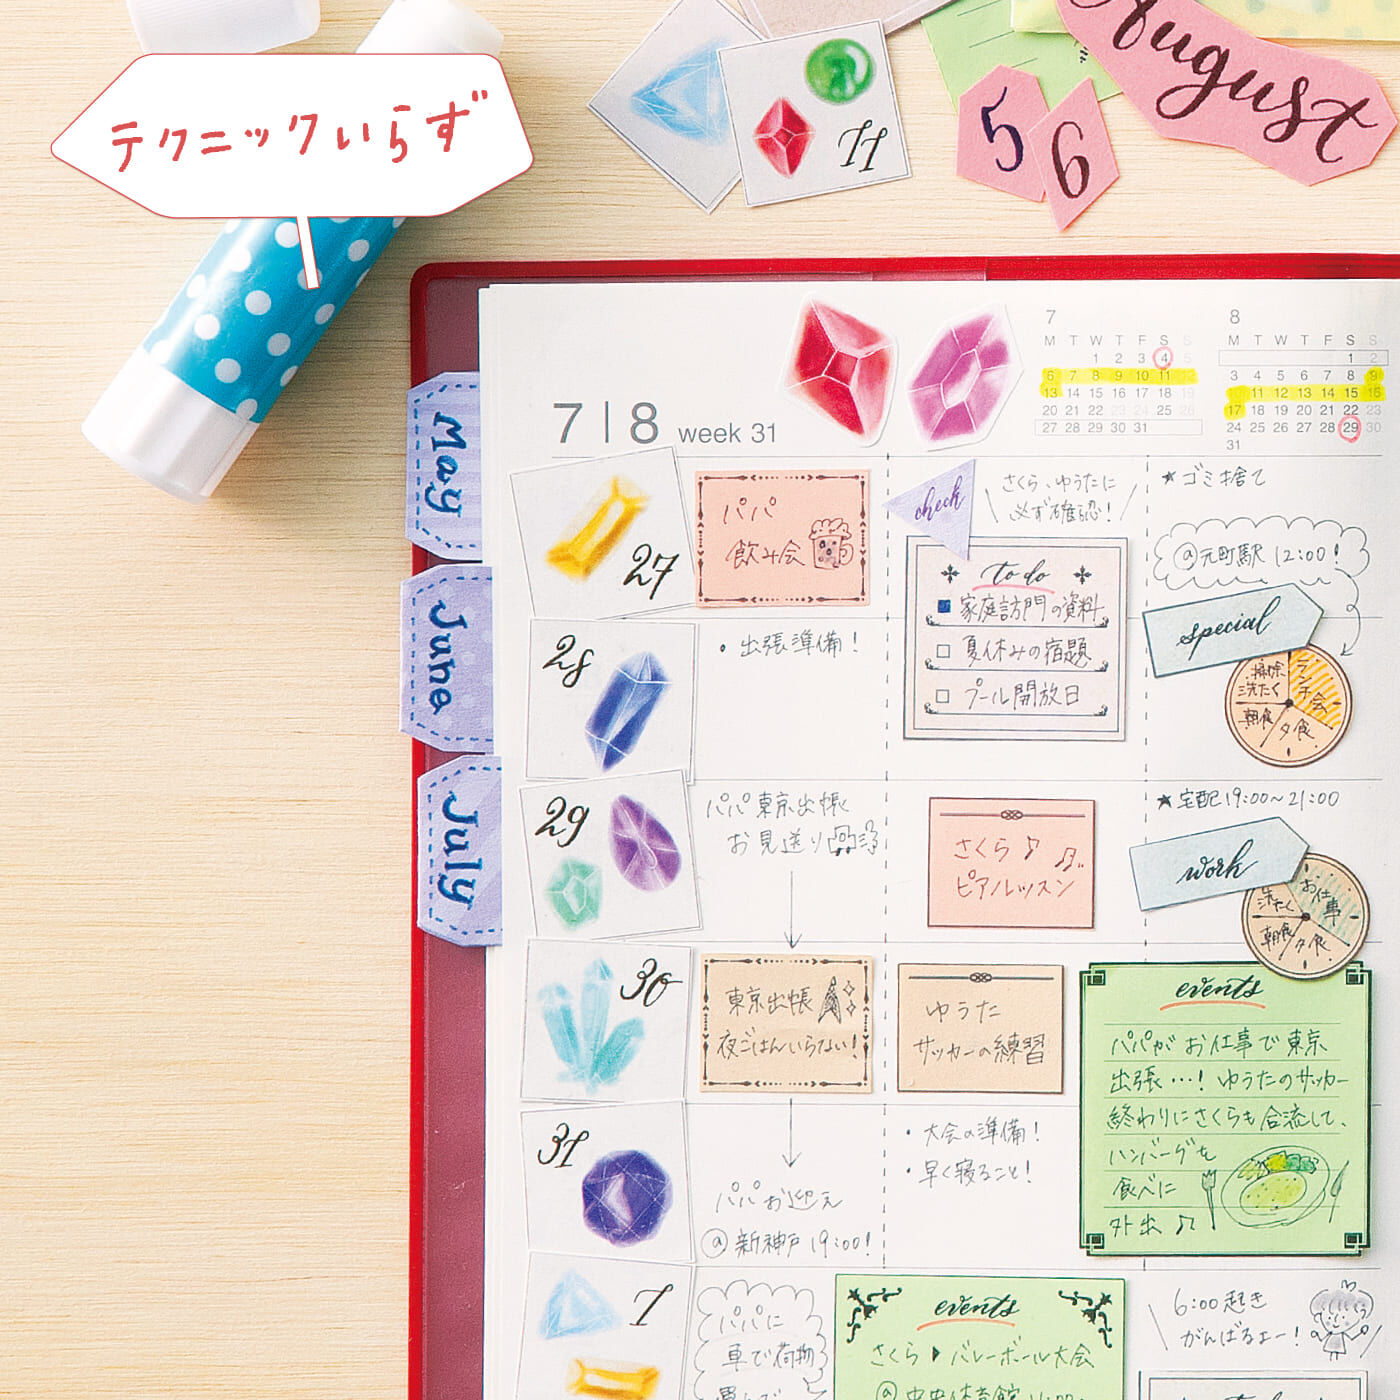 テクニックいらず
11
August
5
6
7|8 week 31
7
M T W T F S S
1 2 3 4 5
6 7 8 9 10 11 12
13 14 15 16 17 18 19
20 21 22 23 24 25 26
27 28 29 30 31
8
M T W T F S S
1 2
3 4 5 6 7 8 9
10 11 12 13 14 15 16
17 18 19 20 21 22 23
24 25 26 27 28 29 30
31
May
June
July
27
パパ
飲み会
check
さくら、ゆうたに
必ず確認!
to do
家庭訪問の資料
夏休みの宿題
プール開放日
★ゴミ捨て
@元町駅 12:00!
special
掃除
洗たく
ランチ会
朝食
夕食
28
・出張準備!
29
パパ東京出帳
お見送り
さくら♪
ピアノレッスン
★宅配19:00~21:00
work
洗たく
お仕事
朝食
夕食
30
東京出帳
夜ごはんいらない!
ゆうた
サッカーの練習
events
パパがお仕事で東京
出張…!ゆうたのサッカー
終わりにさくらも合流して、
ハンバーグを
食べに
外出♫
31
パパお迎え
@新神戸 19:00!
・大会の準備!
・早く寝ること!
1
パパに
車で荷物
events
さくら▶バレーボール大会
@中央体育館
6:00起き
がんばるよー!